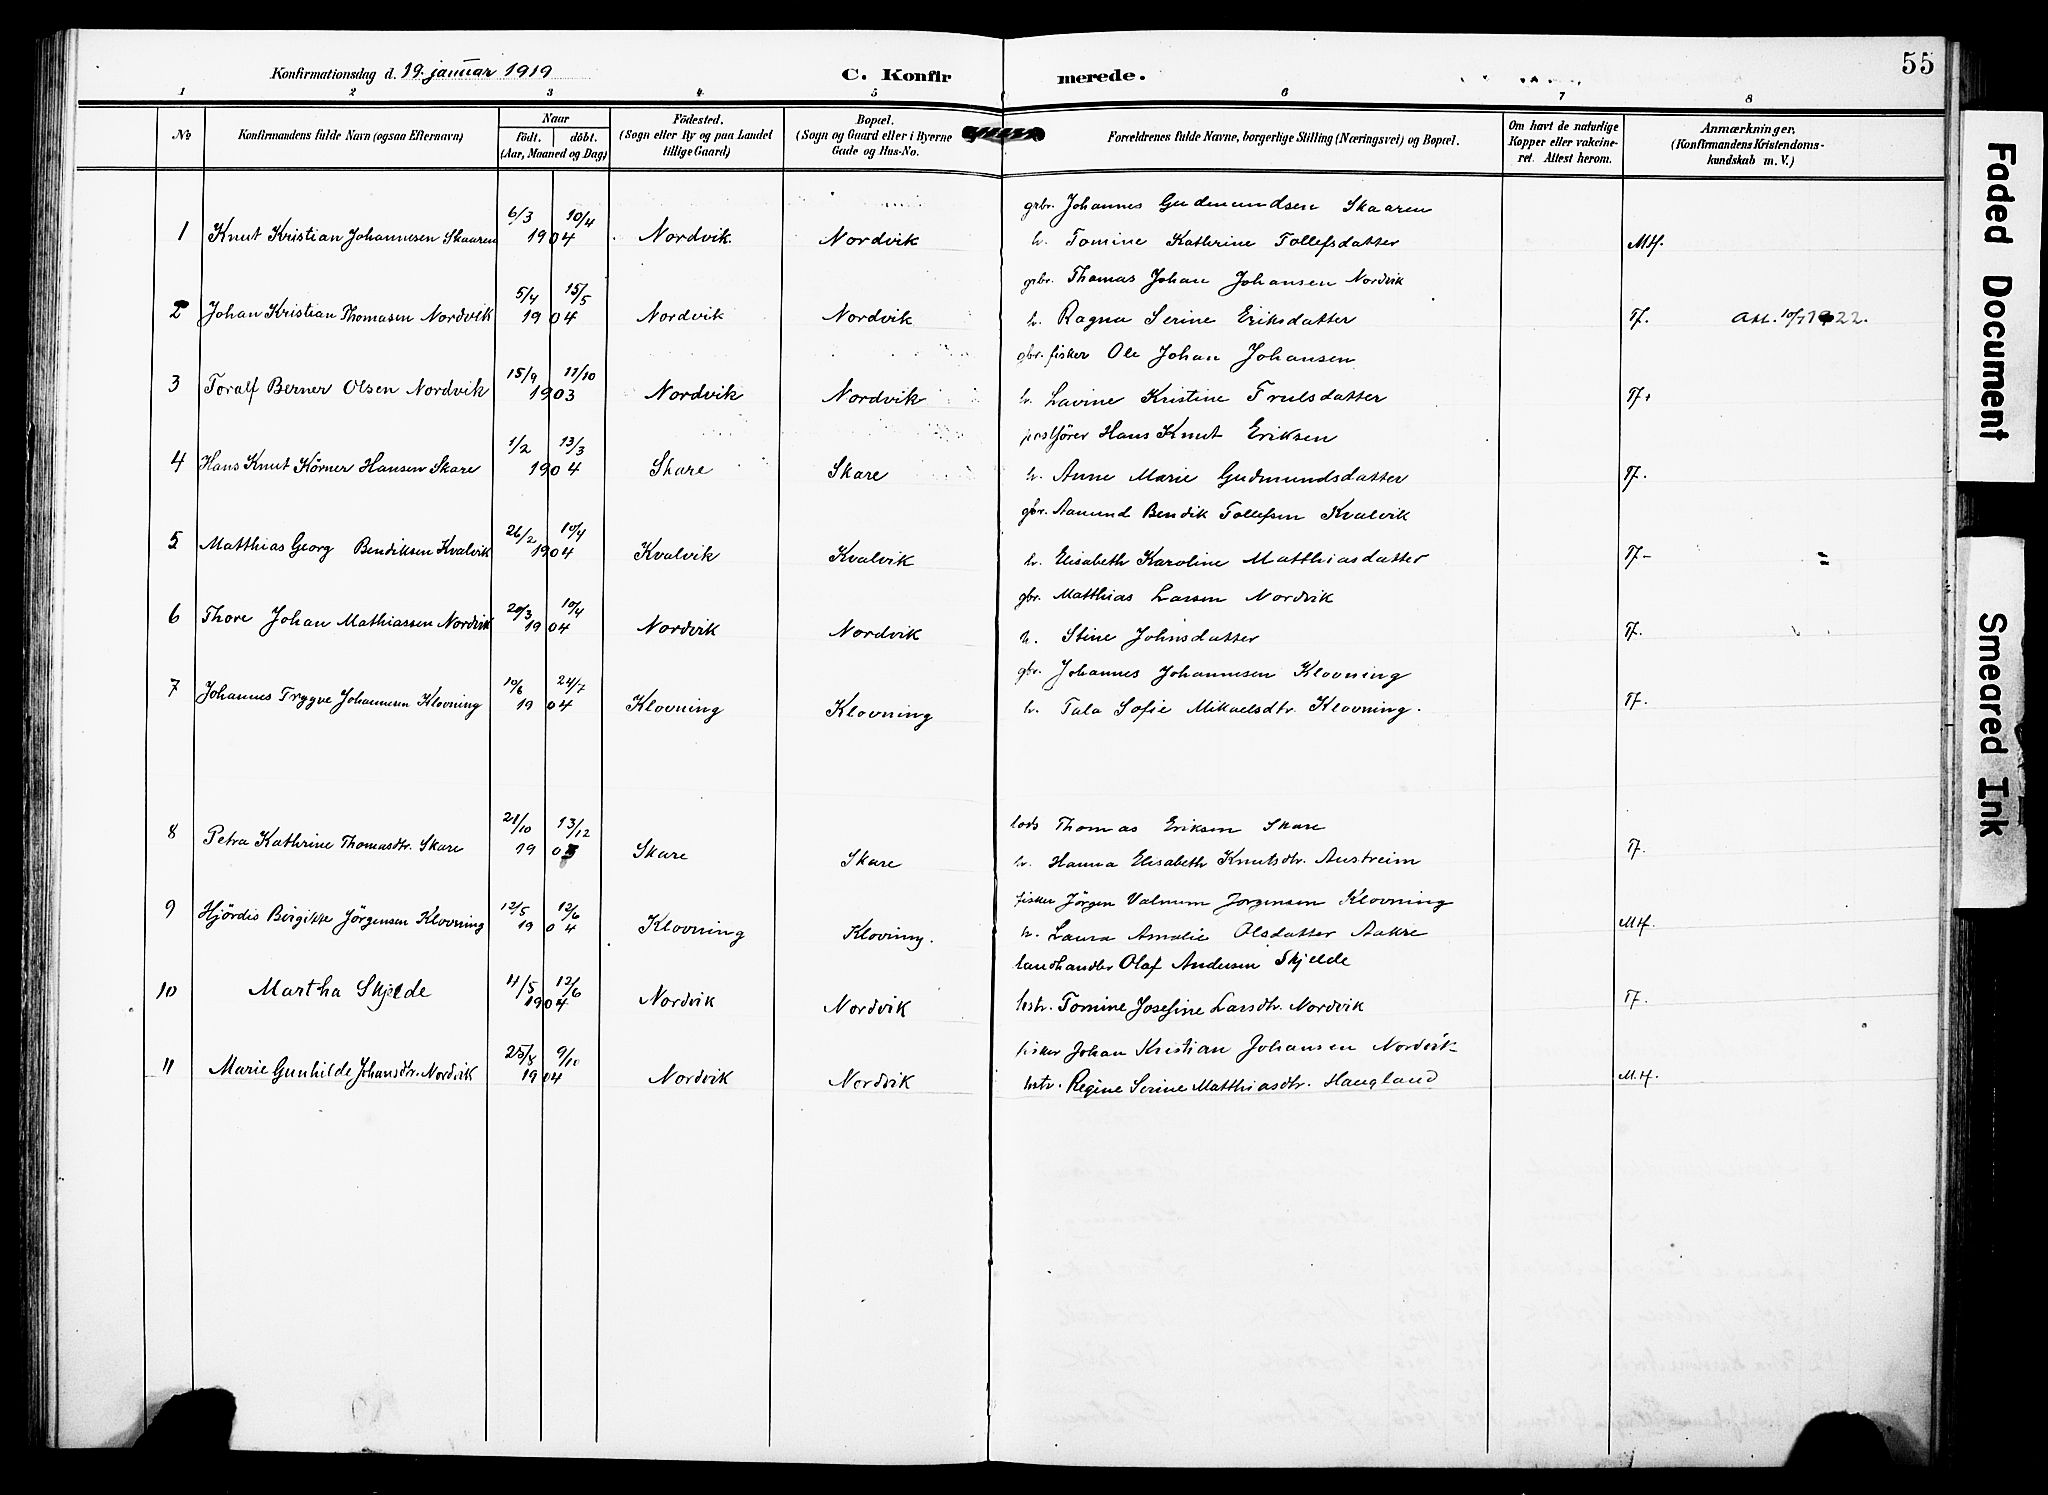 55
Konfirmationsdag d. 19. januar 1919 C. Konfirmerede.
1 2 3 4 5 6 7 8
No Konfirmandens fulde Navn (ogsaa Efternavn) Naar født. døbt. (Aar, Maaned og Dag) Fødested. (Sogn eller By og paa Landet tillige Gaard) Bopæl. (Sogn og Gaard eller i Byerne Gade og Hus-No. Forældrenes fulde Navne, borgerlige Stilling (Næringsvei) og Bopæl. Om havt de naturlige Kopper eller vakcineret. Attest herom. Anmærkninger. (Konfirmandens Kristendomskundskab m. V.)
6/3 10/4 grbr. Johannes Gudmundsen Skaaren
1 Knut Kristian Johannesen Skaaren 1904 Nordvik. Nordvik h. Tomine Kathrine Tollefsdatter M.tf.
5/4 15/5 grbr. Thomas Johan Johansen Nordvik
2 Johan Kristian Thomasen Nordvik 1904 Nordvik Nordvik h. Ragna Serine Eriksdatter Tf. Att. 10/7 1922.
15/9 11/10 gbr. fisker Ole Johan Johansen
3 Toralf Berner Olsen Nordvik 1903 Nordvik Nordvik h. Lavine Kristine Trulsdatter Tf+
1/2 13/3 postfører Hans Knut Eriksen
4 Hans Knut Körner Hansen Skare 1904 Skare Skare h. Anne Marie Gudmundsdatter Tf.
26/2 10/4 gbr. Aamund Bendik Tollefsen Kvalvik
5 Matthias Georg Bendiksen Kvalvik 1904 Kvalvik Kvalvik h. Elisabeth Karoline Matthiasdatter Tf-
20/3 10/4 gbr. Matthias Larsen Nordvik
6 Thore Johan Mathiassen Nordvik 1904 Nordvik Nordvik h. Stine Johnsdatter Tf.
10/6 24/7 gbr. Johannes Johannesen Klovning
7 Johannes Trygve Johannesen Klovning 1904 Klovning Klovning h. Tala Sofie Mikaelsdtr. Klovning. Tf.
21/10 13/12 lods Thomas Eriksen Skare
8 Petra Kathrine Thomasdtr. Skare 1903 Skare Skare h. Hanna Elisabeth Knutsdtr. Austreim Tf.
12/5 12/6 fisker Jörgen Valnum Jorgensen Klovning
9 Hjördis Birgitte Jörgensen Klovning 1904 Klovning Klovning. h. Laura Amalie Olsdatter Aakre M.tf.
11/5 12/6 landhandler Olaf Andersen Skjelde
10 Martha Skjelde 1904 Nordvik Nordvik hstr. Tomine Josefine Larsdtr. Nordvik Tf.
25/8 9/10 fisker Johan Kristian Johansen Nordvik
11 Marie Gunhilde Johansdtr. Nordvik 1904 Nordvik Nordvik hstr. Regine Serine Matthiasdtr. Haugland M.tf.
Faded Document
Smeared Ink